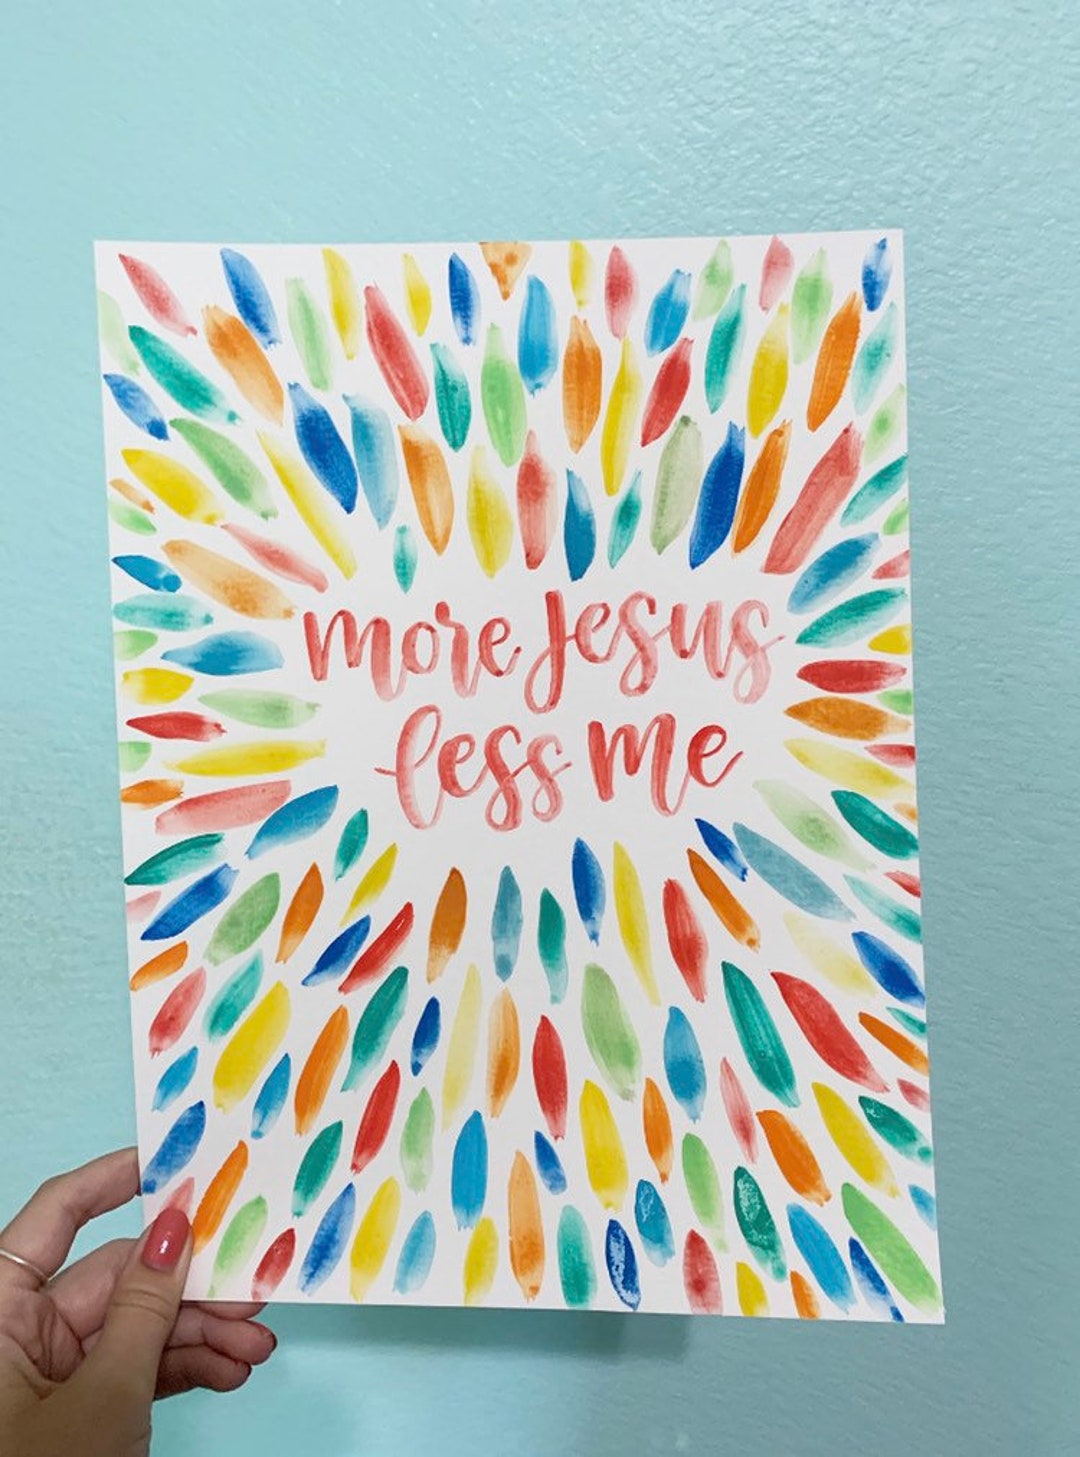 more Jesus
less me